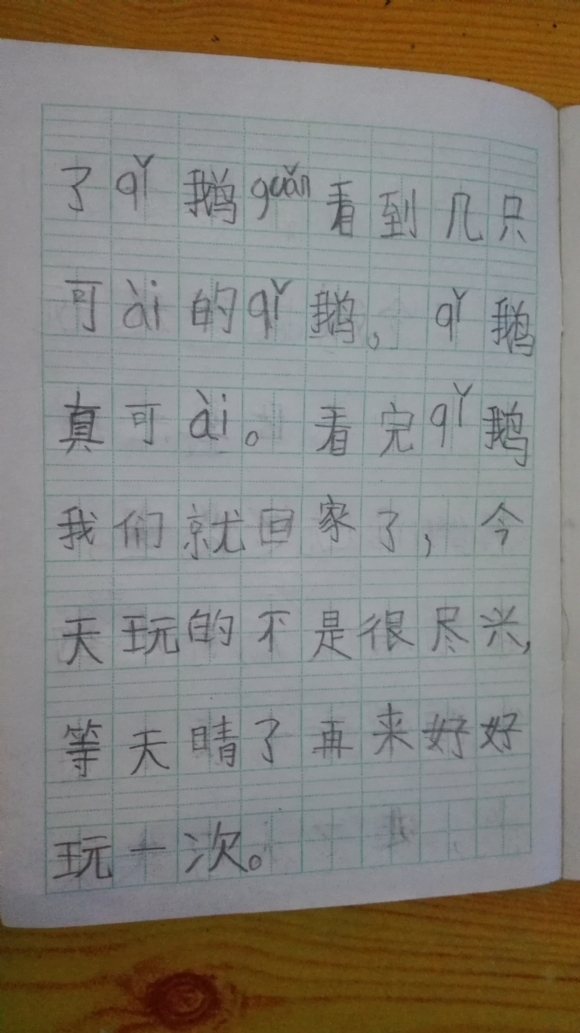 了qǐ鹅guǎn看到几只
可ài的qǐ鹅，qǐ鹅
真可ài。看完qǐ鹅
我们就回家了，今
天玩的不是很尽兴，
等天晴了再来好好
玩一次。